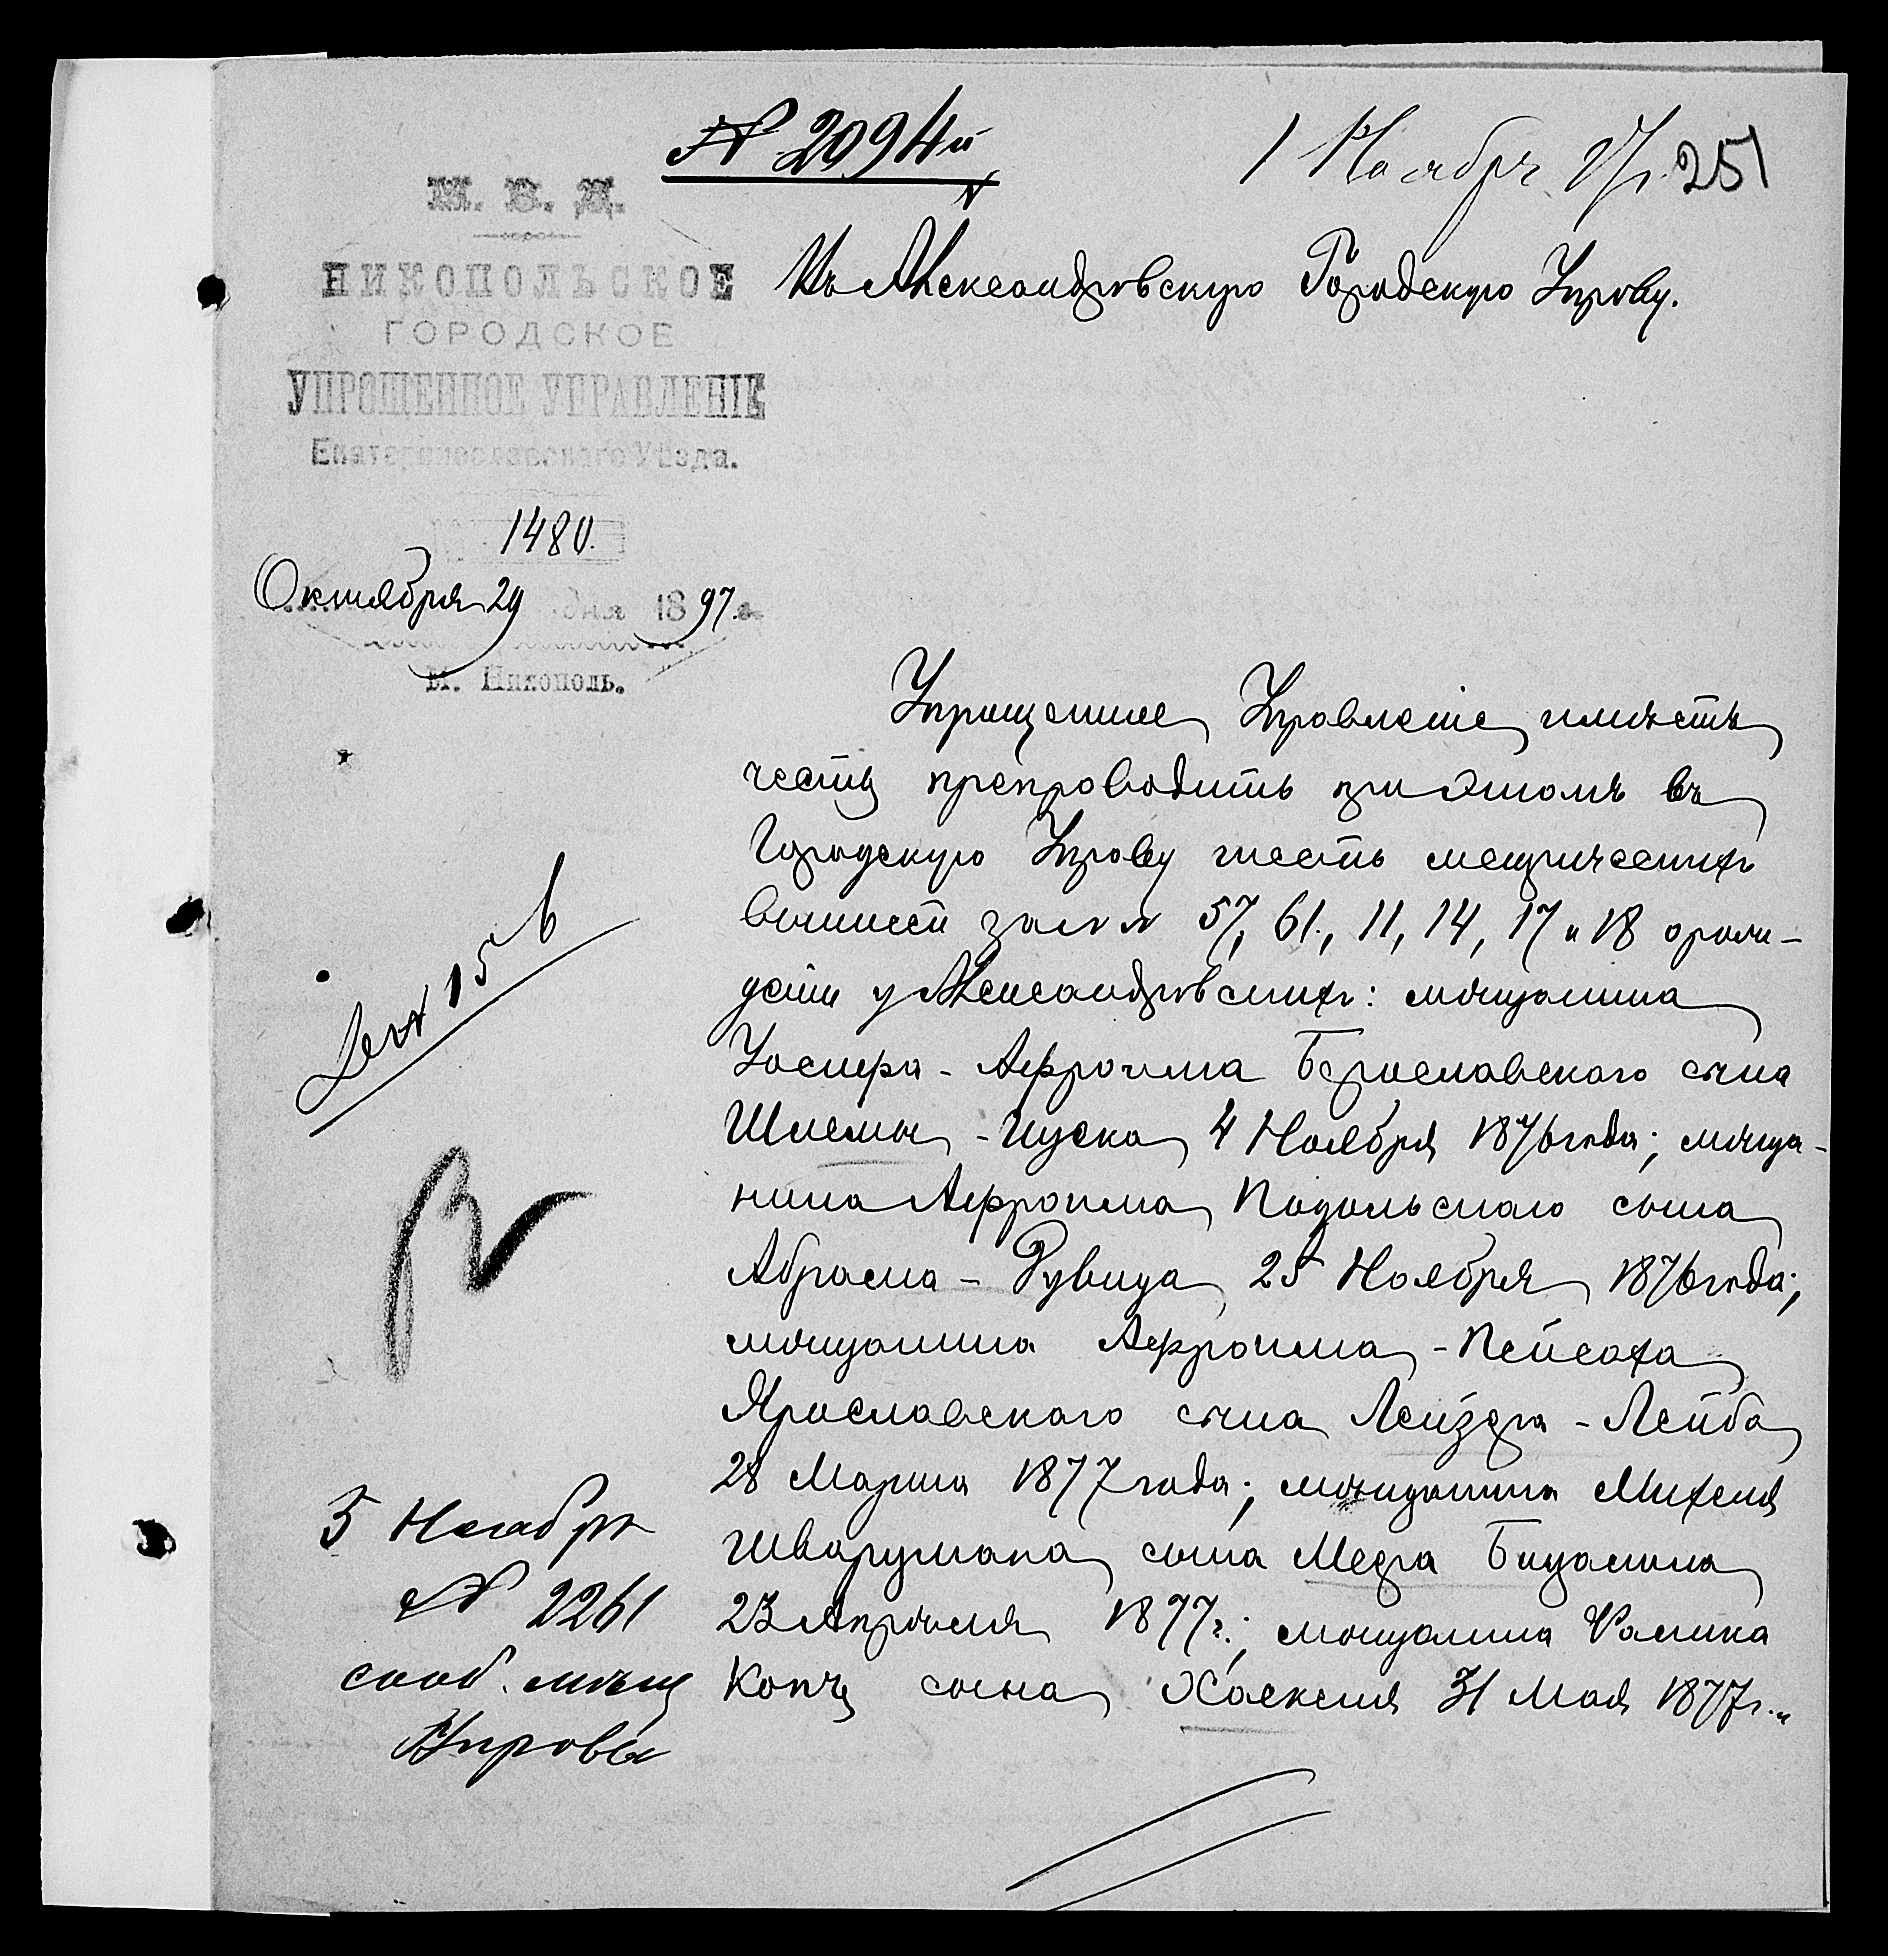 № 2094й
1 Ноября 97г. 251
М. В. Д.
НИКОПОЛЬСКОЕ
ГОРОДСКОЕ
УПРОЩЕННОЕ УПРАВЛЕНІЕ
Екатеринославскаго Уѣзда.
1480.
Октября 29 дня 1897 г.
М. Никополь.
Въ Александровскую Городскую Управу.
Упрощенное Управленіе имѣетъ
честь препроводить при этомъ въ
Городскую Управу шесть метрическихъ
выписей за №№ 57, 61, 11, 14, 17 и 18 о рожденіи
у Александровскихъ: мѣщанина
Іосифа-Афроима Бериславскаго сына
Шлемы-Ицека 4 Ноября 1876 года; мѣща-
нина Афроима Подольскаго сына
Абрама-Рувида 25 Ноября 1876 года;
мѣщанина Афроима-Пейсаха
Ярославскаго сына Лейзера-Лейба
28 Марта 1877 года; мѣщанина Михеля
Шварцмана сына Меера
23 Апрѣля 1877 г.; мѣщанина
Копч сына Хаскеля 31 Мая 1877 г. и
15
5 Ноября
№ 2261
сооб. мѣщ
Управы